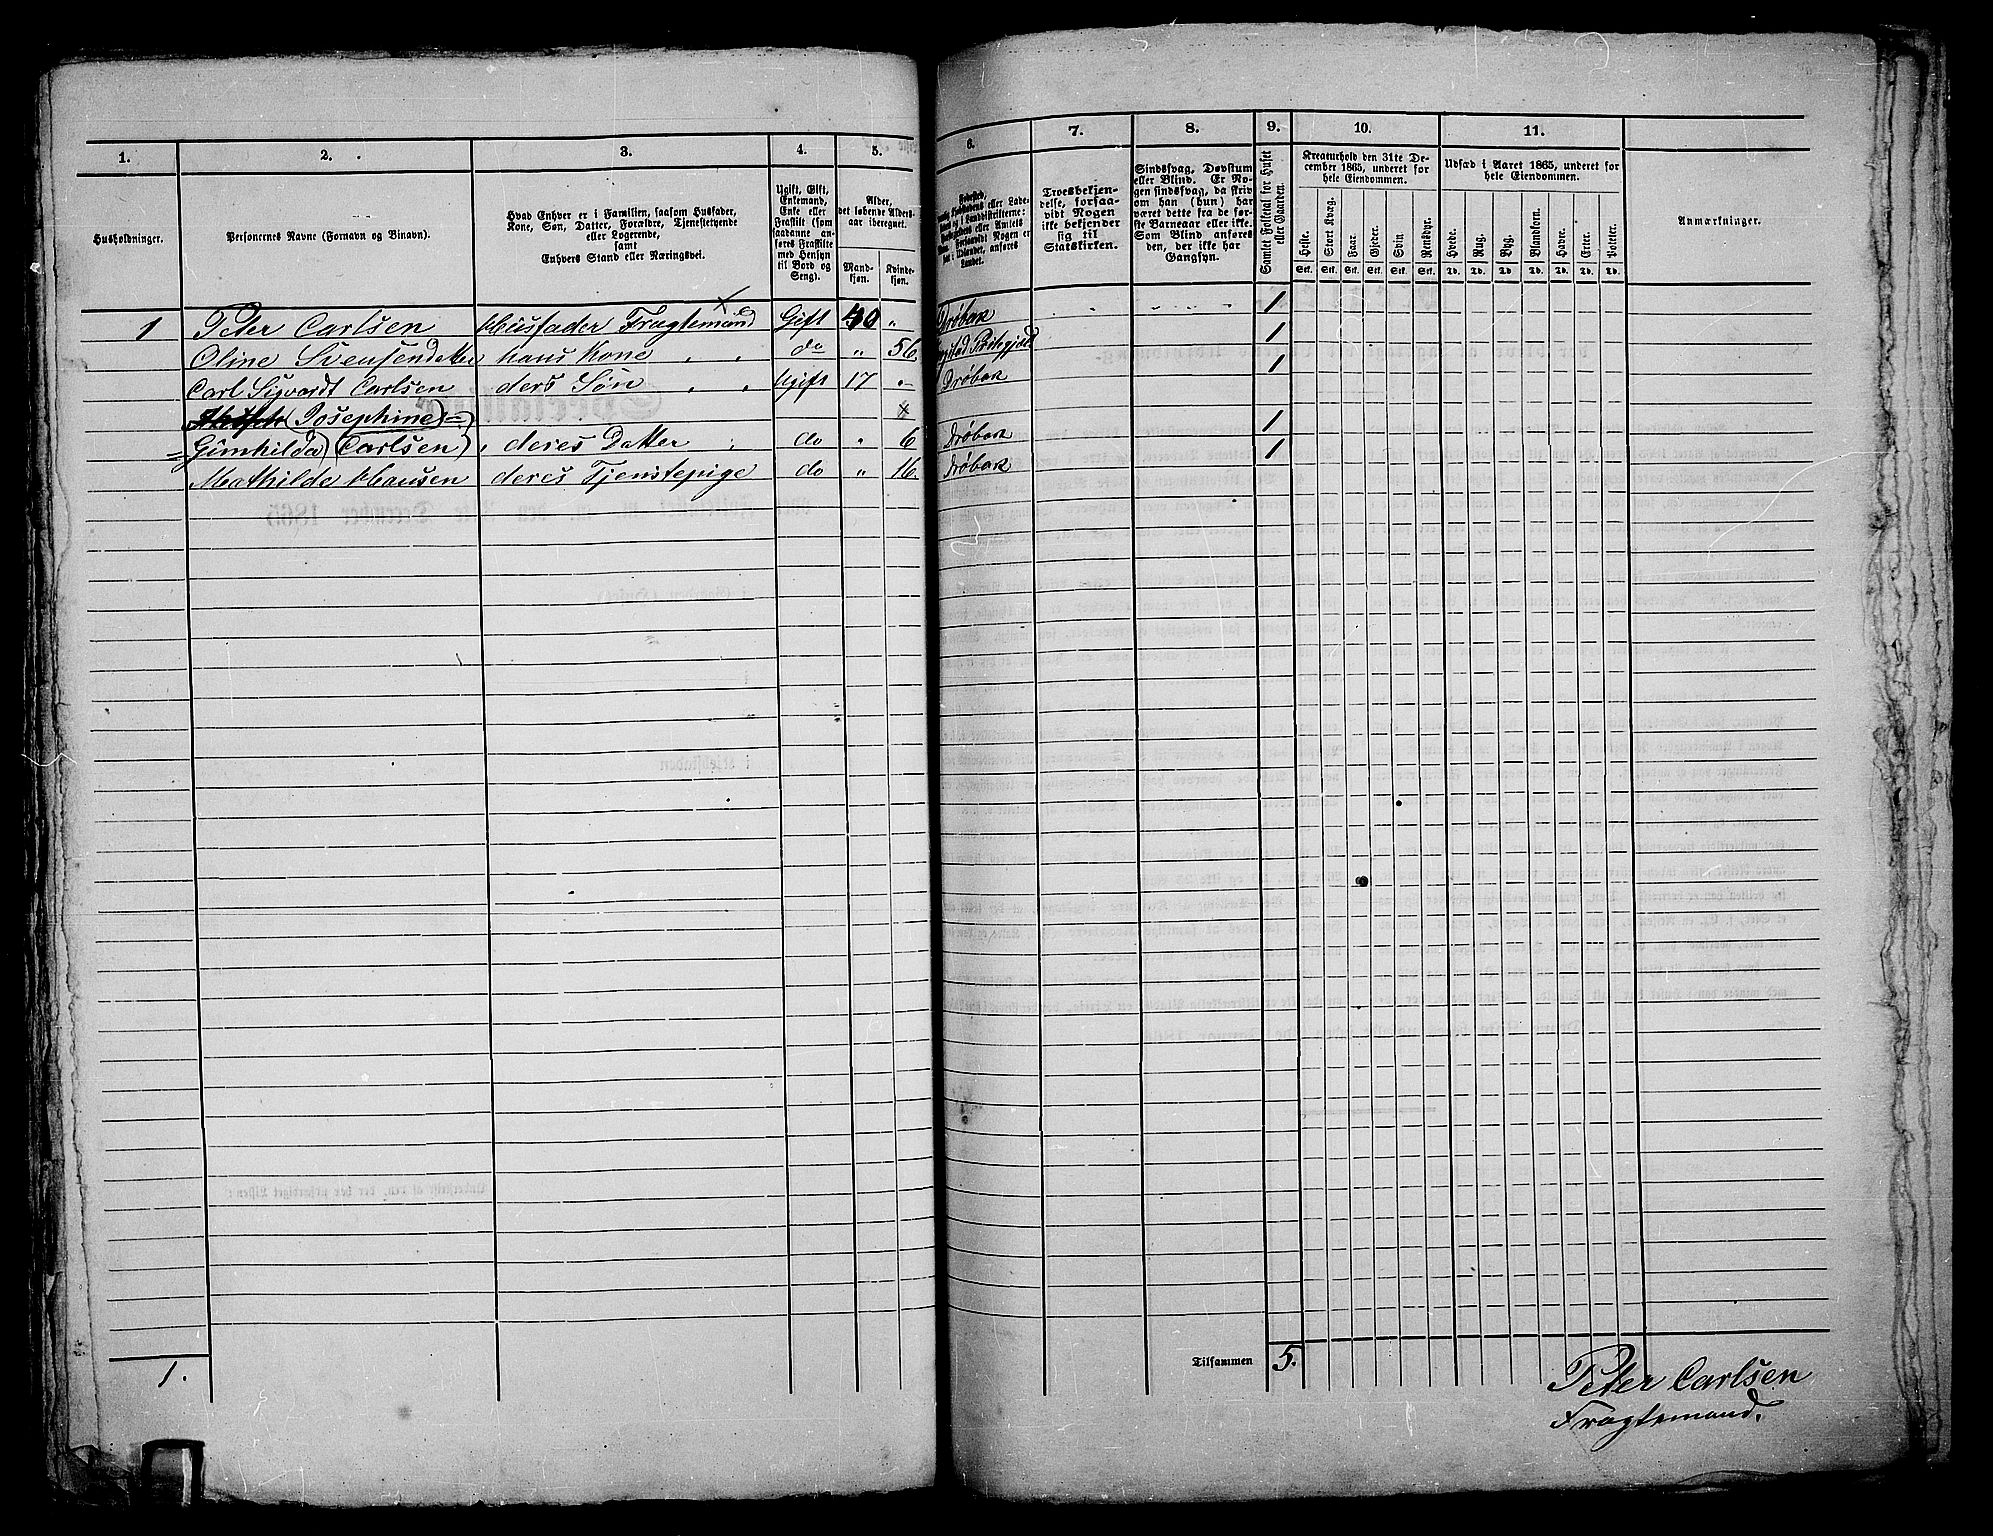 1. 2. 3. 4. 5. 6. 7. 8. 9. 10. 11.
Husholdninger.
Personernes Navne (Fornavn og Binavn).
Hvad Enhver er i Familien, saasom Husfader,
Kone, Søn, Datter, Forældre, Tjenstetyende
eller Logerende,
samt
Enhvers Stand eller Næringsvei.
Ugift, Gift,
Enkemand,
Enke eller
Fraskilt (som
saadanne an-
føres Fraskilte
med Hensyn
til Bord og
Seng).
Alder,
det løbende Alders-
aar iberegnet.
Mand-
kjøn.
Kvinde-
kjøn.
Fødested,
Troesbekjen-
delse, forsaa-
vidt Nogen
ikke bekjender
sig til
Statskirken.
Sindssvag, Døvstum
eller Blind. Er No-
gen sindssvag, da skriv
om han (hun) har
været dette fra de før-
ste Barneaar eller ikke.
Som Blind anføres
den, der ikke har
Gangsyn.
Samlet Folketal for Huset
eller Gaarden.
Kreaturhold den 31te De-
cember 1865, underet for
hele Eiendommen.
Heste. Stort Kvæg. Faar. Gjeder. Svin. Rensdyr.
Stk. Stk. Stk. Stk. Stk. Stk.
Udsæd i Aaret 1865, underet for
hele Eiendommen.
Hvede. Rug. Byg. Blandkorn. Havre. Erter. Poteter.
Td. Td. Td. Td. Td. Td. Td.
Anmærkninger.
1 Peter Carlsen Huusfader Fragtemand Gift 40 " Drøbak 1
Oline Svensendatter hans Kone " " do " 56. 1
Carl Sigvardt Carlsen ders Søn " " Ugift 17 " Drøbak 1
(Josephine)=
=Gunhilda) (Carlsen) , deres Datter do " 6 Drøbak 1
Mathilde Hansen deres Tjenstepige do " 16. Drøbak 1
1.
Tilsammen 5.
Peter Carlsen
Fragtemand.